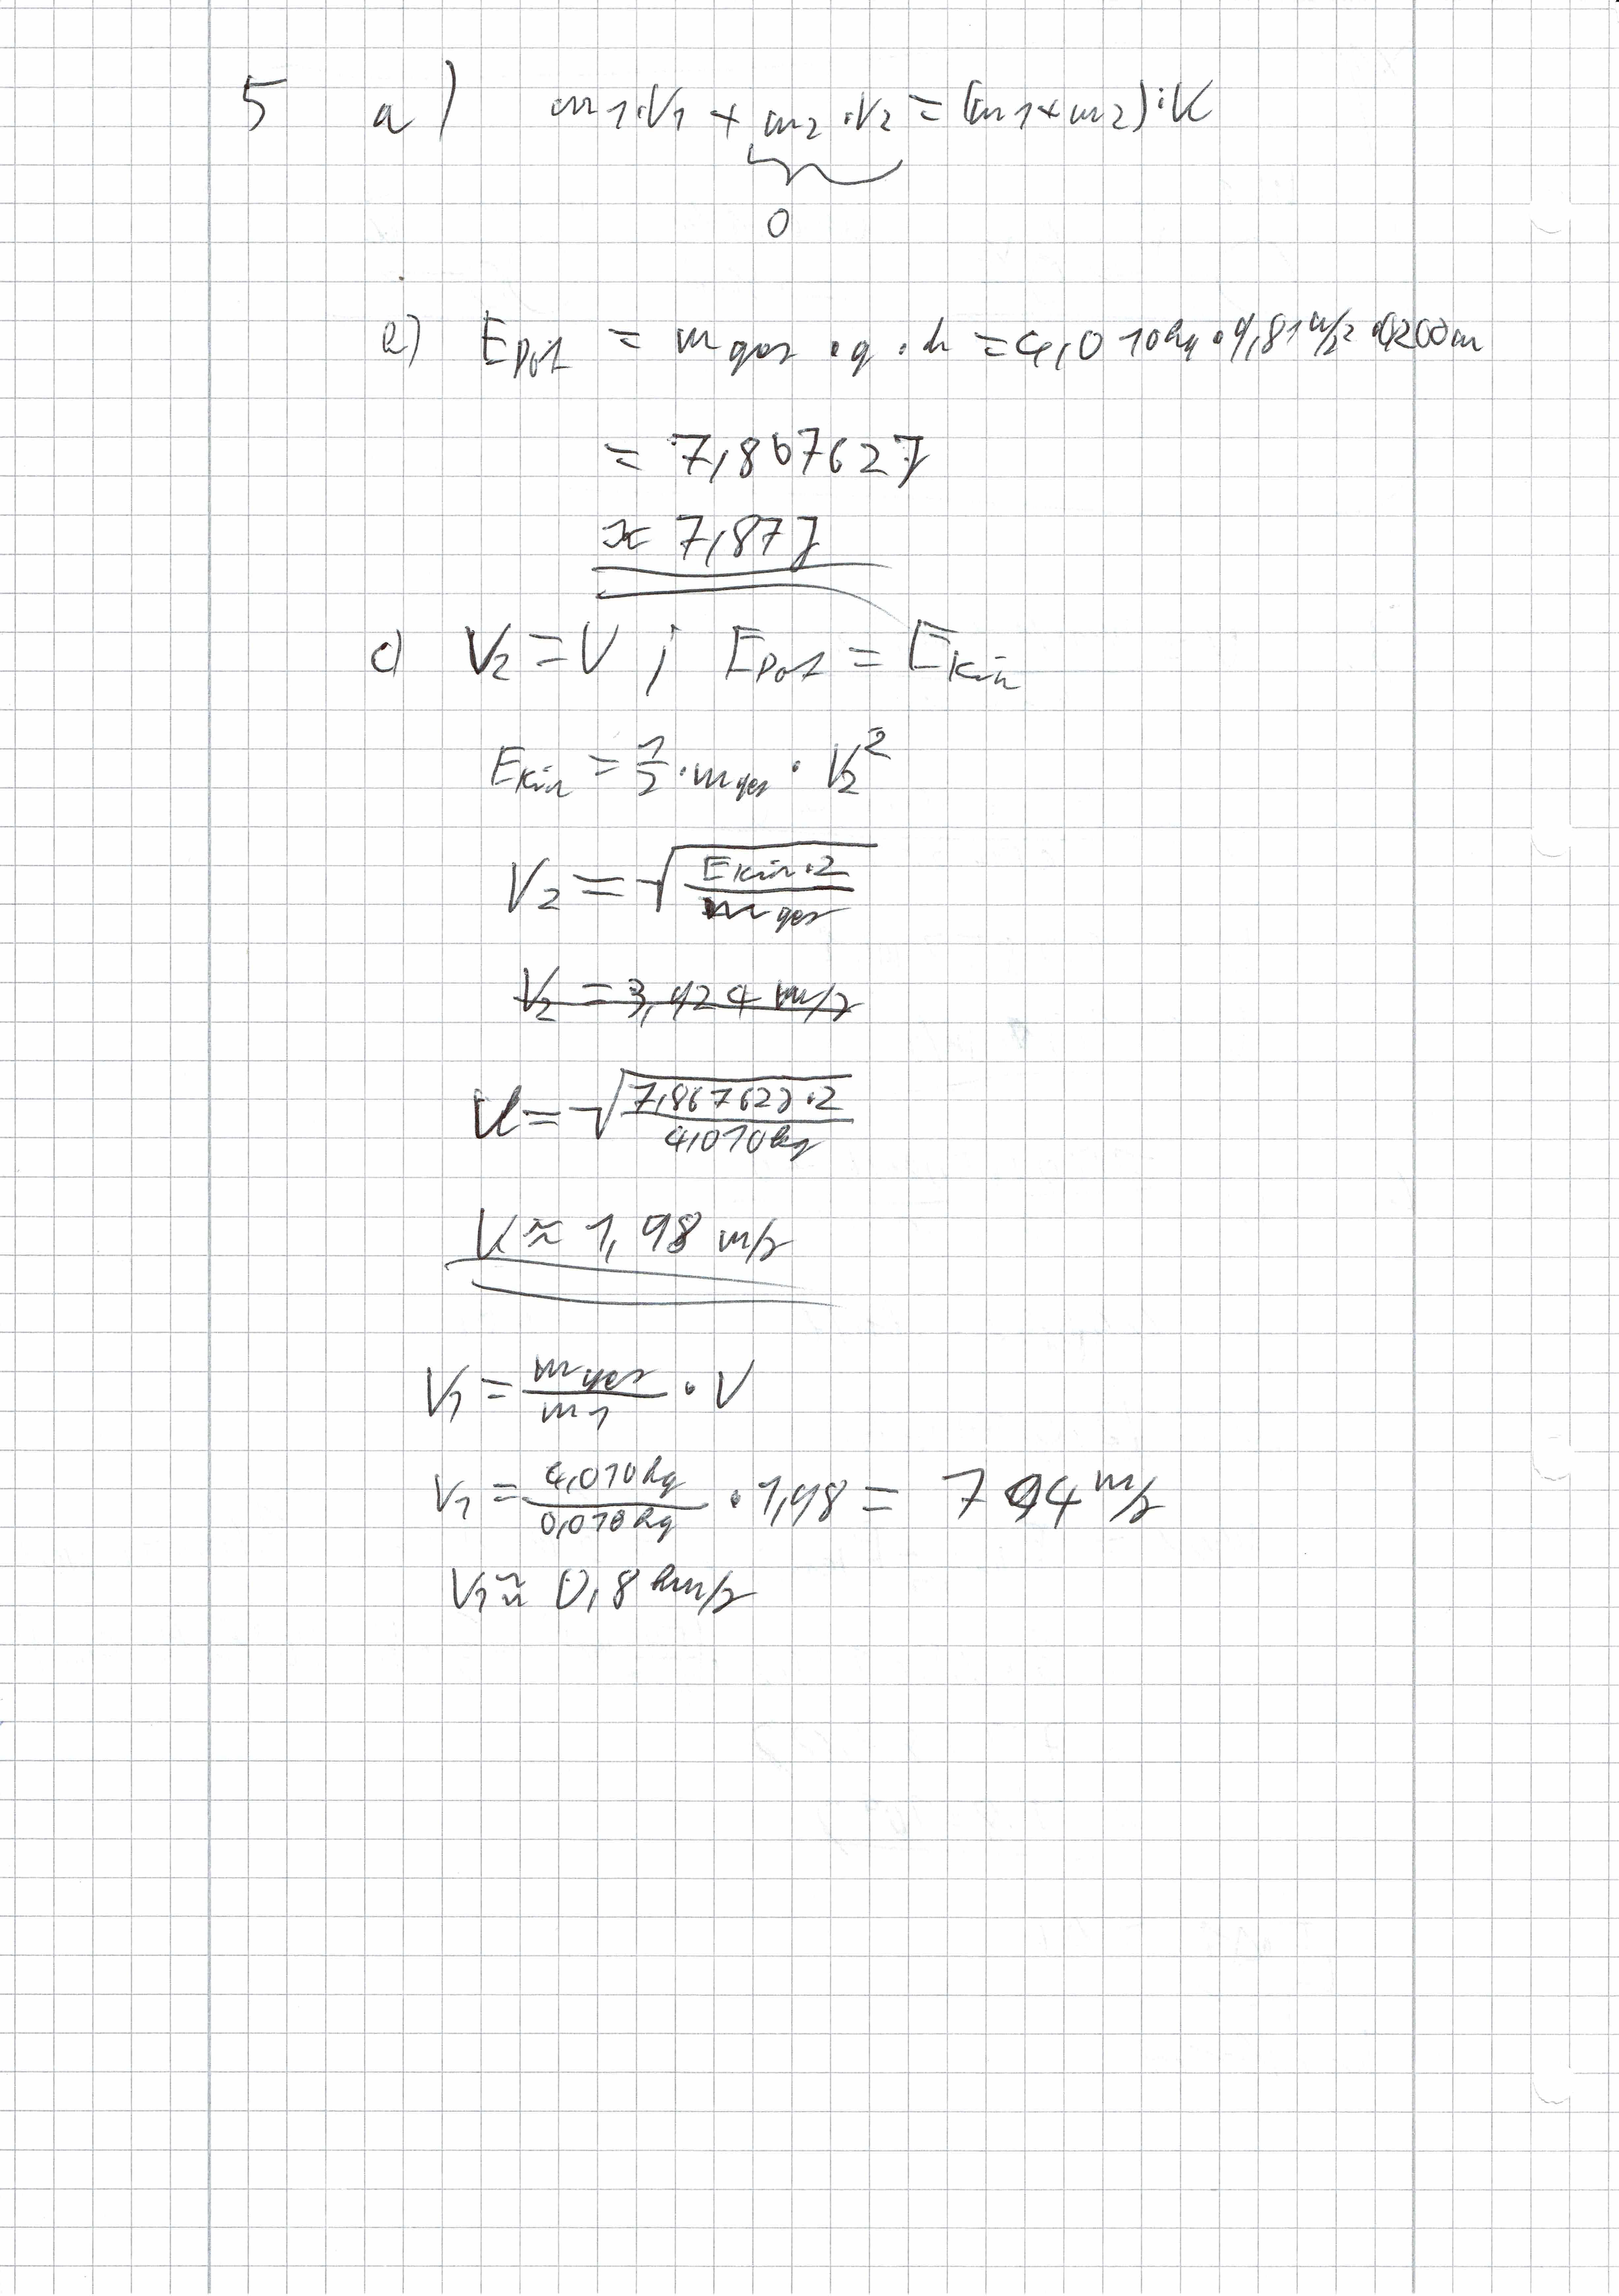 5 a) m1·V1 + m2·V2 = (m1+m2)·V
0
b) EPot = mges · g · h = 4,010kg·9,81m/s²·0,200m
= 7,86762J
≈ 7,87J
c) V2 = V ; EPot = EKin
EKin = 1/2 · mges · V2²
V2 = √(EKin·2 / mges)
V2 = 3,924 m/s
V = √(7,86762J·2 / 4,010kg)
V ≈ 1,98 m/s
V1 = mges / m1 · V
V1 = 4,010kg / 0,010kg · 1,98 = 794 m/s
V1 ≈ 0,8 km/s